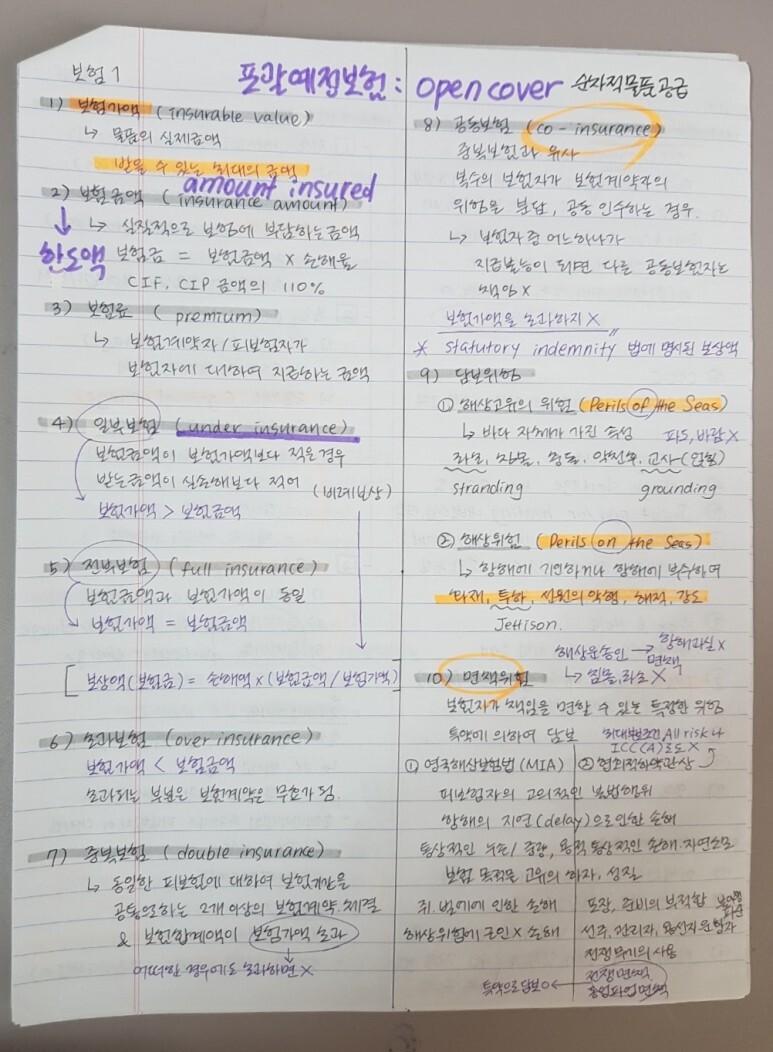 보험 1
포괄예정보험 : open cover 순차적물품공급
1) 보험가액 (insurable value)
↳ 물품의 실제금액
받을 수 있는 최대의 금액
amount insured
2) 보험금액 (insurance amount)
↳ 실질적으로 보험에 부담하는 금액
한도액
보험금 = 보험금액 × 손해율
CIF, CIP 금액의 110%
3) 보험료 (premium)
↳ 보험계약자/피보험자가
보험자에 대하여 지급하는 금액
4) 일부보험 (under insurance)
보험금액이 보험가액보다 적은경우
받는금액이 실손해보다 적어 (비례보상)
보험가액 > 보험금액
5) 전부보험 (full insurance)
보험금액과 보험가액이 동일
보험가액 = 보험금액
[보상액(보험금) = 손해액 × (보험금액/보험가액)]
6) 초과보험 (over insurance)
보험가액 < 보험금액
초과되는 부분은 보험계약은 무효가 됨.
7) 중복보험 (double insurance)
↳ 동일한 피보험에 대하여 보험기간을
공통으로하는 2개 이상의 보험계약. 체결
& 보험합계액이 보험가액 초과
어떠한 경우에도 초과하면 ×
8) 공동보험 (co-insurance)
중복보험과 유사
복수의 보험자가 보험계약자의
위험을 분담, 공동 인수하는 경우.
↳ 보험자중 어느하나가
지급불능이 되면 다른 공동보험자는
책임 ×
보험가액을 초과하지 ×
* statutory indemnity 법에 명시된 보상액
9) 담보위험
① 해상고유의 위험 (Perils of the Seas)
↳ 바다 자체가 가진 속성 파도, 바람 ×
좌초, 침몰, 충돌, 악천후, 교사-(얹힘)
stranding grounding
② 해상위험 (Perils on the Seas)
↳ 항해에 기인하거나 항해에 부수하여
화재, 투하, 선원의 악행, 해적, 강도
Jettison.
해상운송인 → 항해과실 ×
면책
↳ 침몰, 좌초 ×
10) 면책위험
보험자가 책임을 면할 수 있는 특정한 위험
특약에 의하여 담보
최대담보조건 All risk나
ICC(A)로도 ×
① 영국해상보험법 (MIA) ② 협회적하약관상
피보험자의 고의적인 불법행위
항해의 지연(delay)으로 인한 손해
통상적인 누손/중량, 용적 통상적인 손해. 자연소모
보험 목적물 고유의 하자, 성질
쥐. 벌레에 인한 손해
해상위험에 근인 × 손해
포장, 준비의 부적합
선주, 관리자, 용선자 운항자
전쟁무기의 사용
전쟁면책
특약으로 담보 ○ ← 동맹파업면책